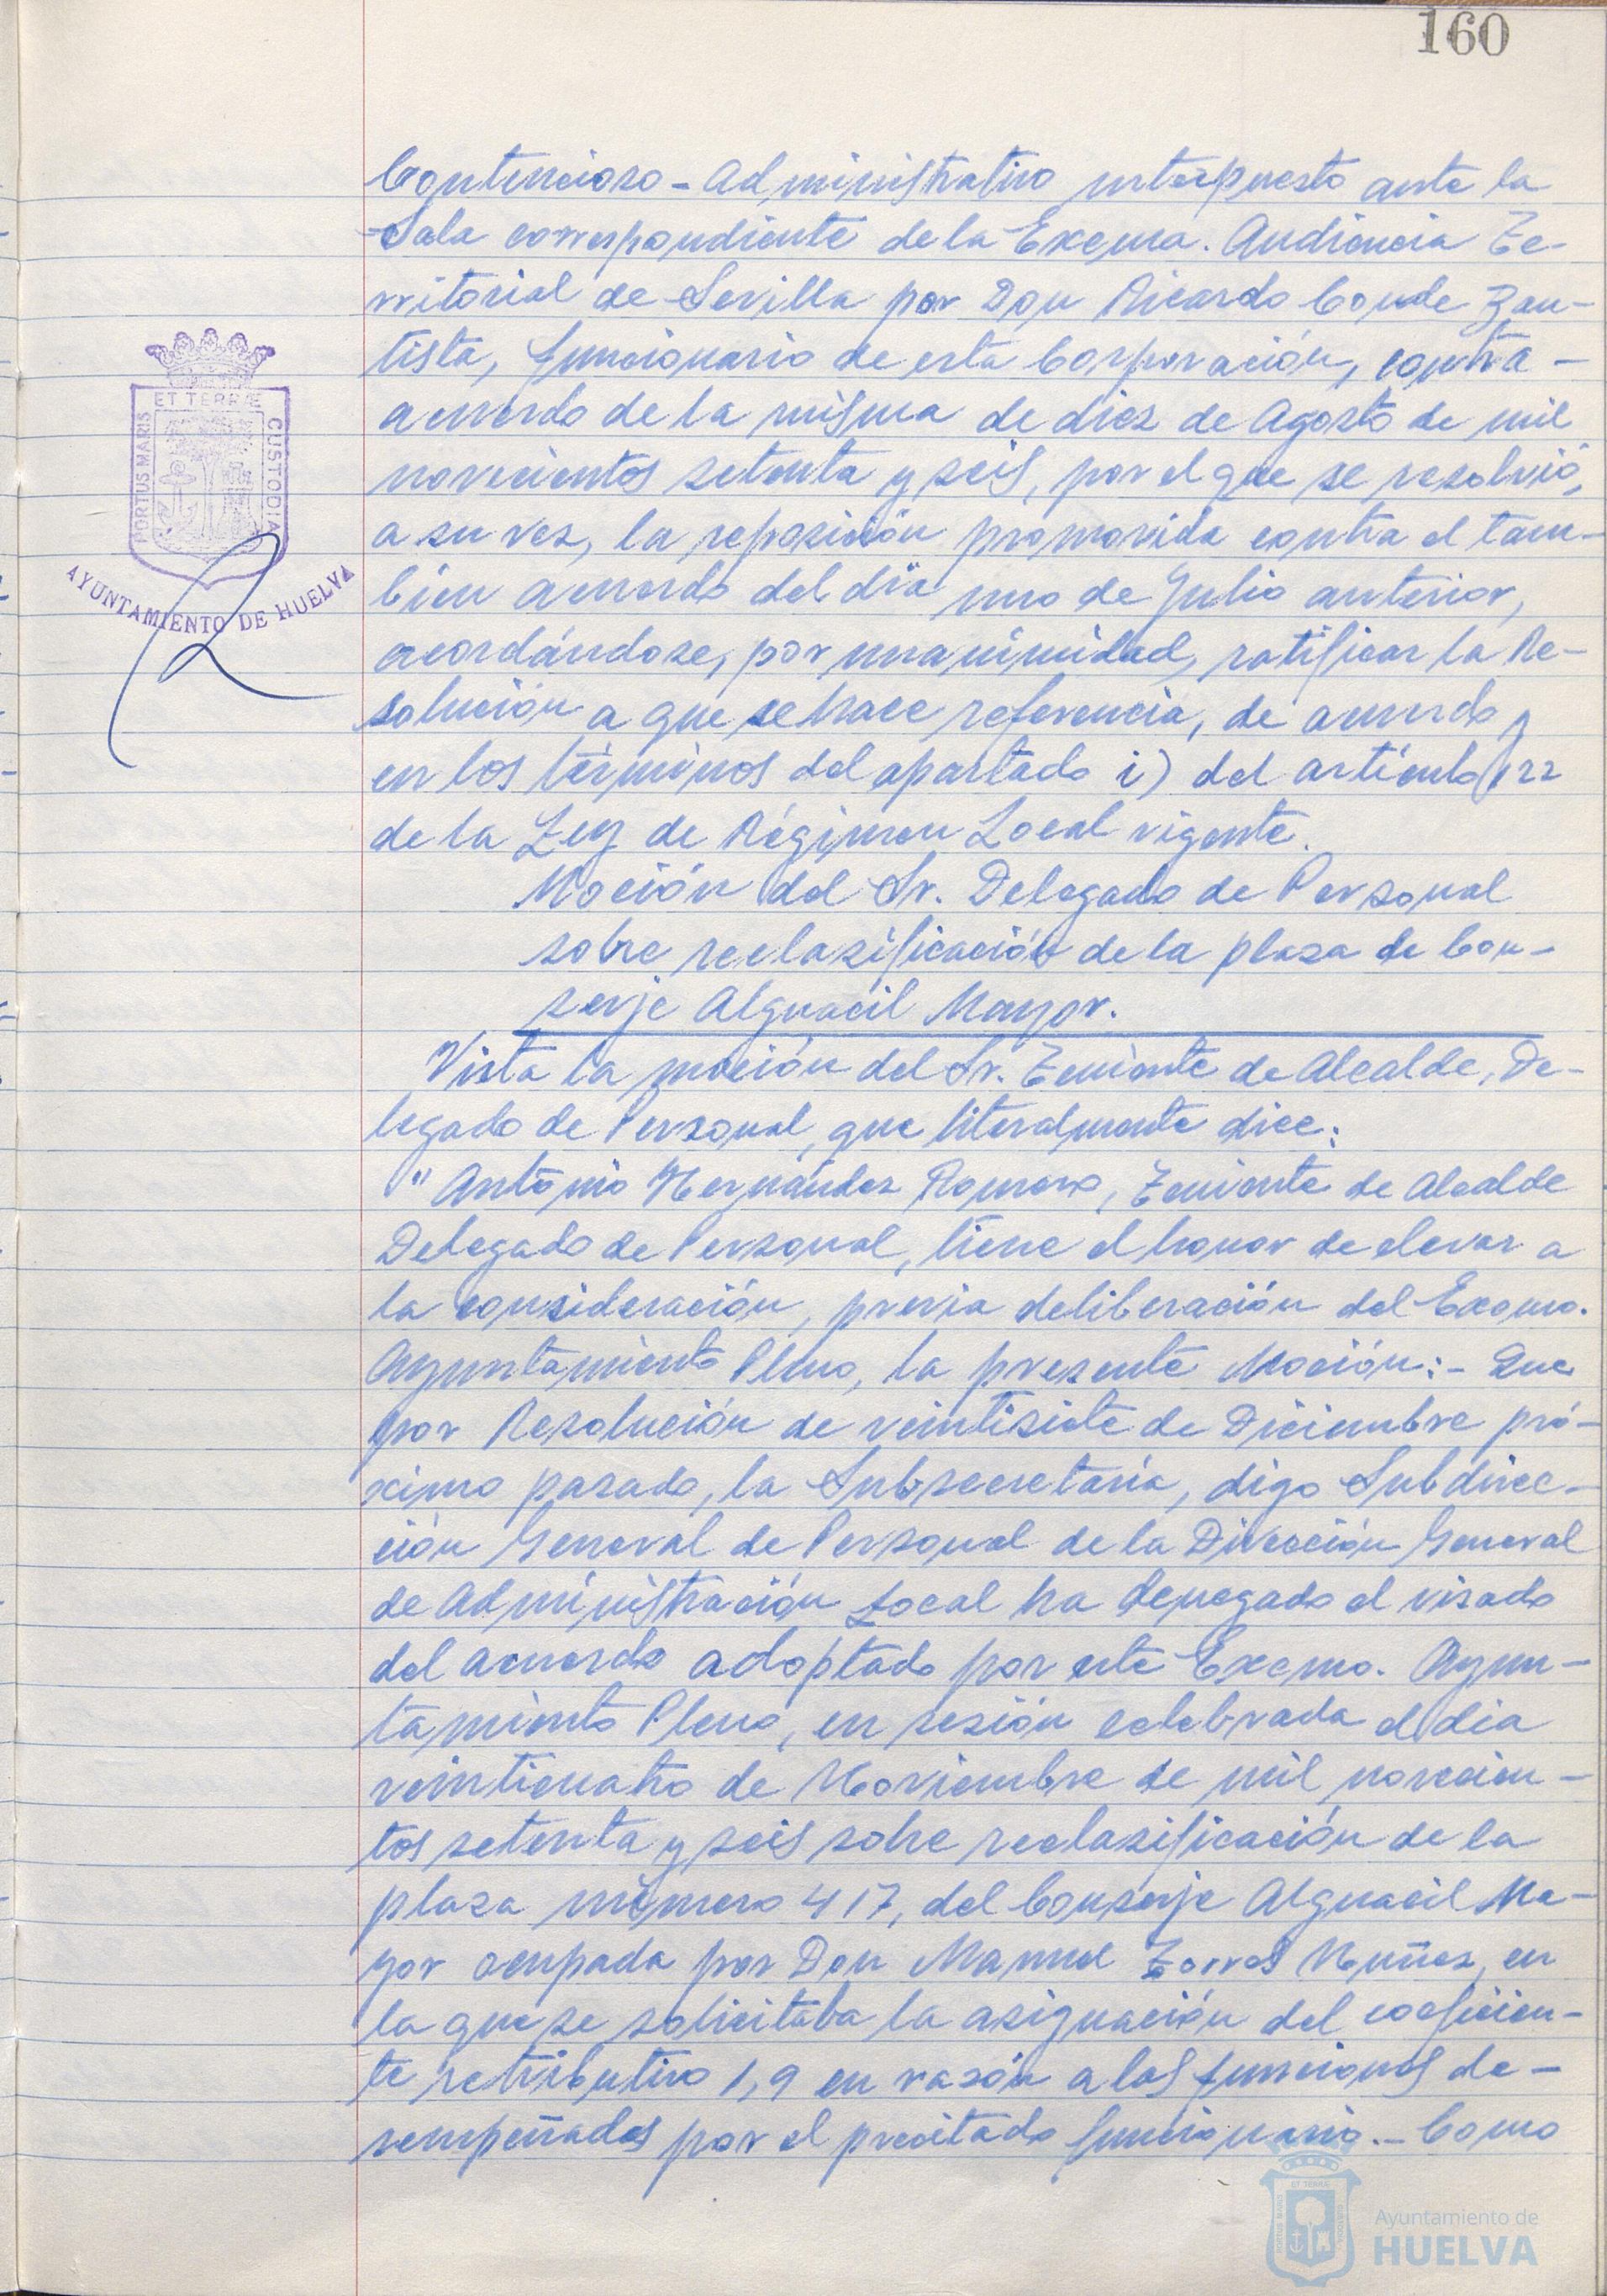 160
Contencioso-Administrativo interpuesto ante la
Sala correspondiente de la Excma. Audiencia Te-
rritorial de Sevilla por Don Ricardo Conde Bau-
tista, funcionario de esta Corporación, contra -
acuerdo de la misma de diez de Agosto de mil
novecientos setenta y seis, por el que se resolvió,
a su vez, la reposición promovida contra el tam-
bién acuerdo del día uno de Julio anterior,
acordándose, por unanimidad, ratificar la Re-
solución a que se hace referencia, de acuerdo y
en los términos del apartado i) del artículo 122
de la Ley de Régimen Local vigente.
Moción del Sr. Delegado de Personal
sobre reclasificación de la plaza de Con-
serje Alguacil Mayor.
Vista la moción del Sr. Teniente de Alcalde, De-
legado de Personal, que literalmente dice:
"Antonio Hernández Romero, Teniente de Alcalde
Delegado de Personal, tiene el honor de elevar a
la consideración, previa deliberación del Excmo.
Ayuntamiento Pleno, la presente Moción:- Que
por Resolución de veintisiete de Diciembre pró-
ximo pasado, la Subsecretaría, digo Subdirec-
ción General de Personal de la Dirección General
de Administración Local ha denegado el visado
del acuerdo adoptado por este Excmo. Ayun-
tamiento Pleno, en sesión celebrada el día
veinticuatro de Noviembre de mil novecien-
tos setenta y seis sobre reclasificación de la
plaza número 417, del Conserje Alguacil Ma-
yor ocupada por Don Manuel Torres Nuñez, en
la que se solicitaba la asignación del coeficien-
te retributivo 1,9 en razón a las funciones de-
sempeñadas por el precitado funcionario.- Como
PORTUS MARIS ET TERRÆ CUSTODIA
AYUNTAMIENTO DE HUELVA
Ayuntamiento de
HUELVA